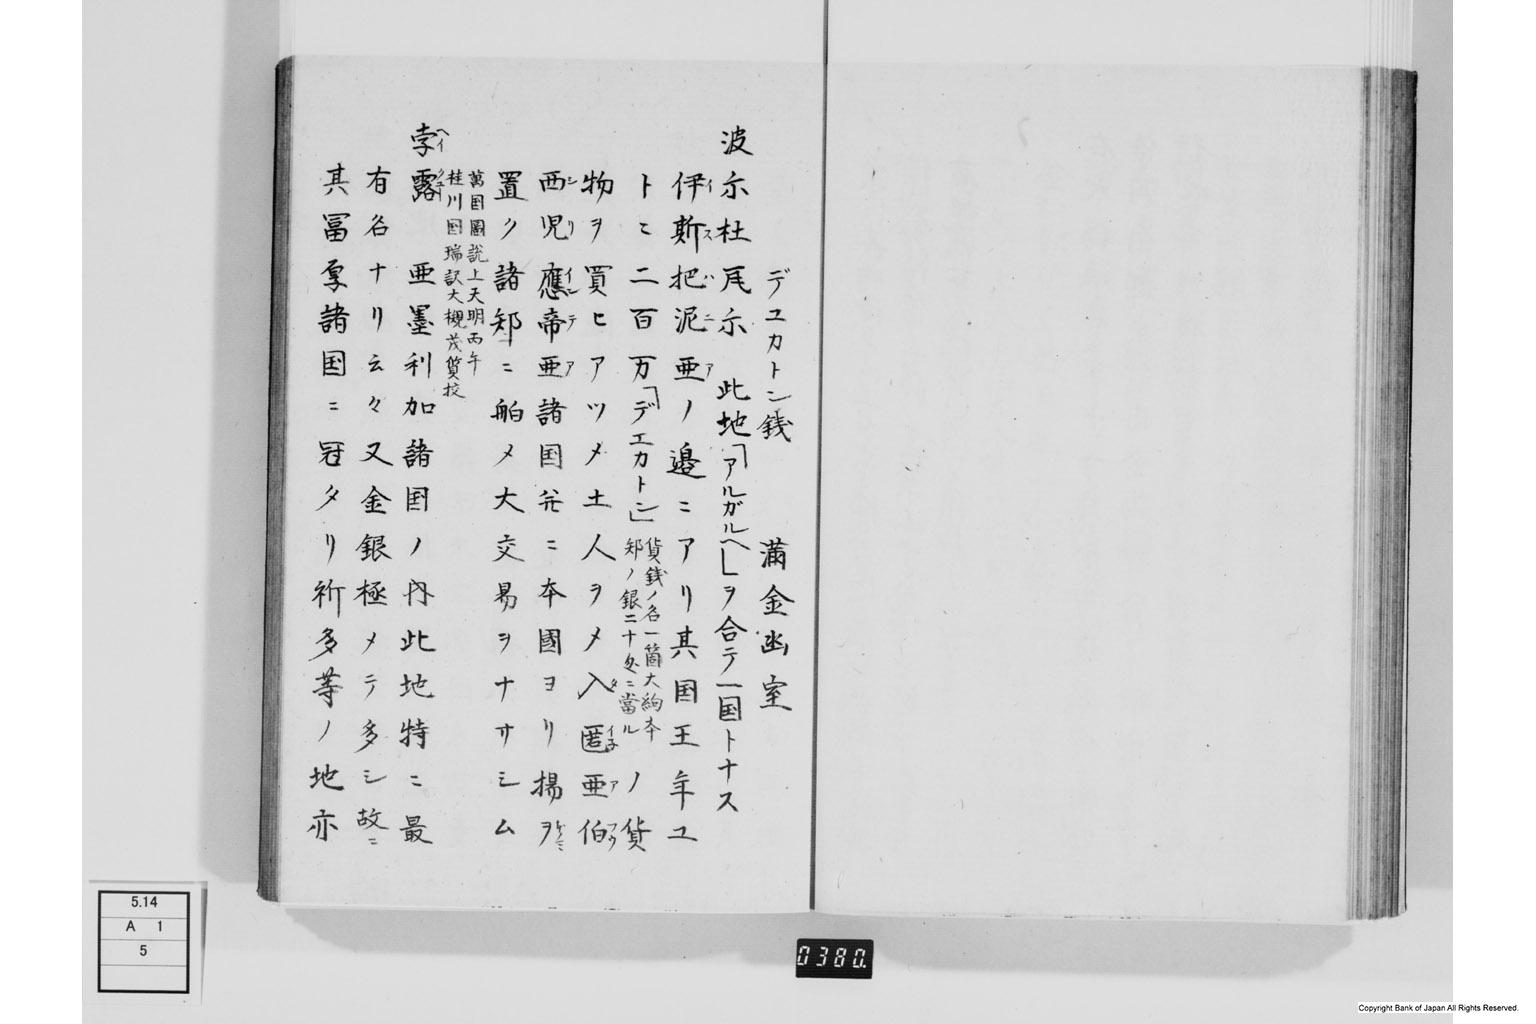 デユカトン銭　満金幽室
波尓杜瓦尓　此地「アルガルヘ」ヲ合テ一国トナス
伊斯把泥亜ノ邊ニアリ其国王年ユ
イスバニア
トニ二百万「デエカトン」
貨銭ノ名一箇大絇本
邦ノ銀二十匁ニ當ル
ノ貨
物ヲ買ヒアツメ土人ヲメ入匿亜伯
西児應帝亜諸国并ニ本國ヨリ揚ヲ
シリインテア
置ク諸邦ニ舶メ大交易ヲナサシム
萬国圖説上天明丙午
桂川国瑞訳大槻茂質校
孛露　亜墨利加諸国ノ内此地特ニ最
有名ナリ云々又金銀極メテ多シ故ニ
其冨厚諸国ニ冠タリ祈多等ノ地亦
5.14
A 1
5
0380.
Copyright Bank of Japan All Rights Reserved.